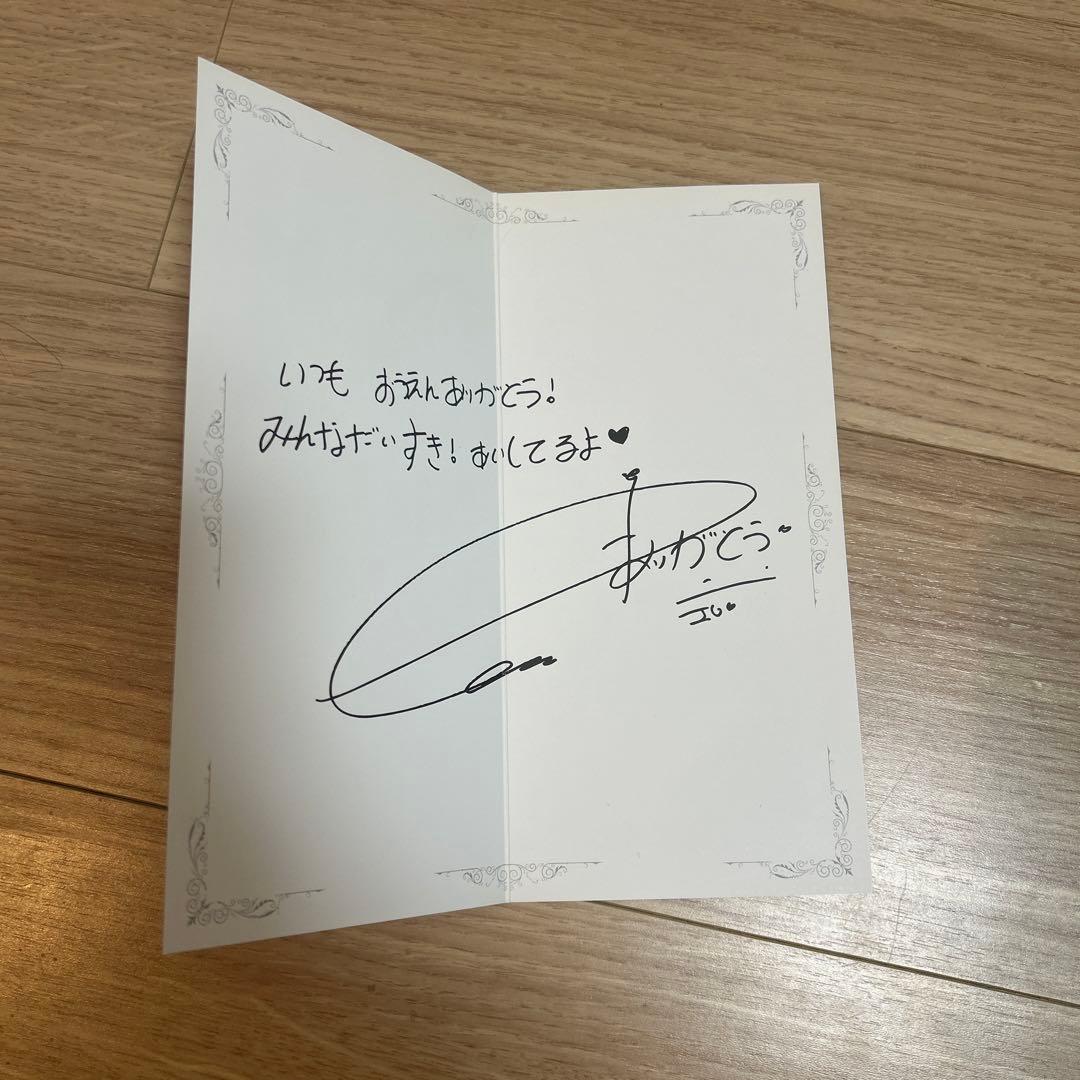 いつも おうえんありがとう!
みんなだいすき! あいしてるよ♥
ありがとう